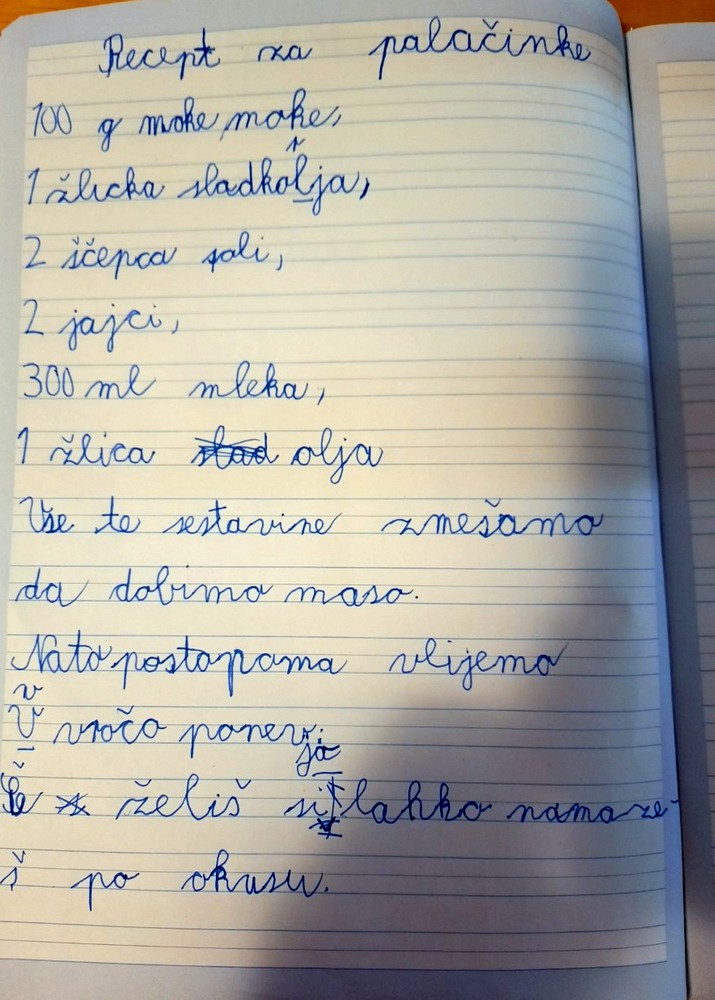 Recept za palačinke
100 g moke, moke,
1 žlicka sladkorja,
2 ščepca soli,
2 jajci,
300 ml mleka,
1 žlica olja
Vse te sestavine zmešamo
da dobimo maso.
Nato postopama vlijemo
v vročo ponev.
Če želiš si ja lahko namaže-
š po okusu.